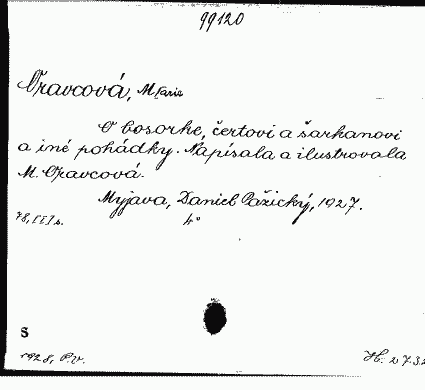 99120
Oravcová, Maria
O bosorke, čertovi a šarkanovi
a iné pohádky. Napísala a ilustrovala
M. Oravcová.
Myjava, Daniel Pažický, 1927.
78, [I] s. 4°
S
1928, P.V. H. 2732